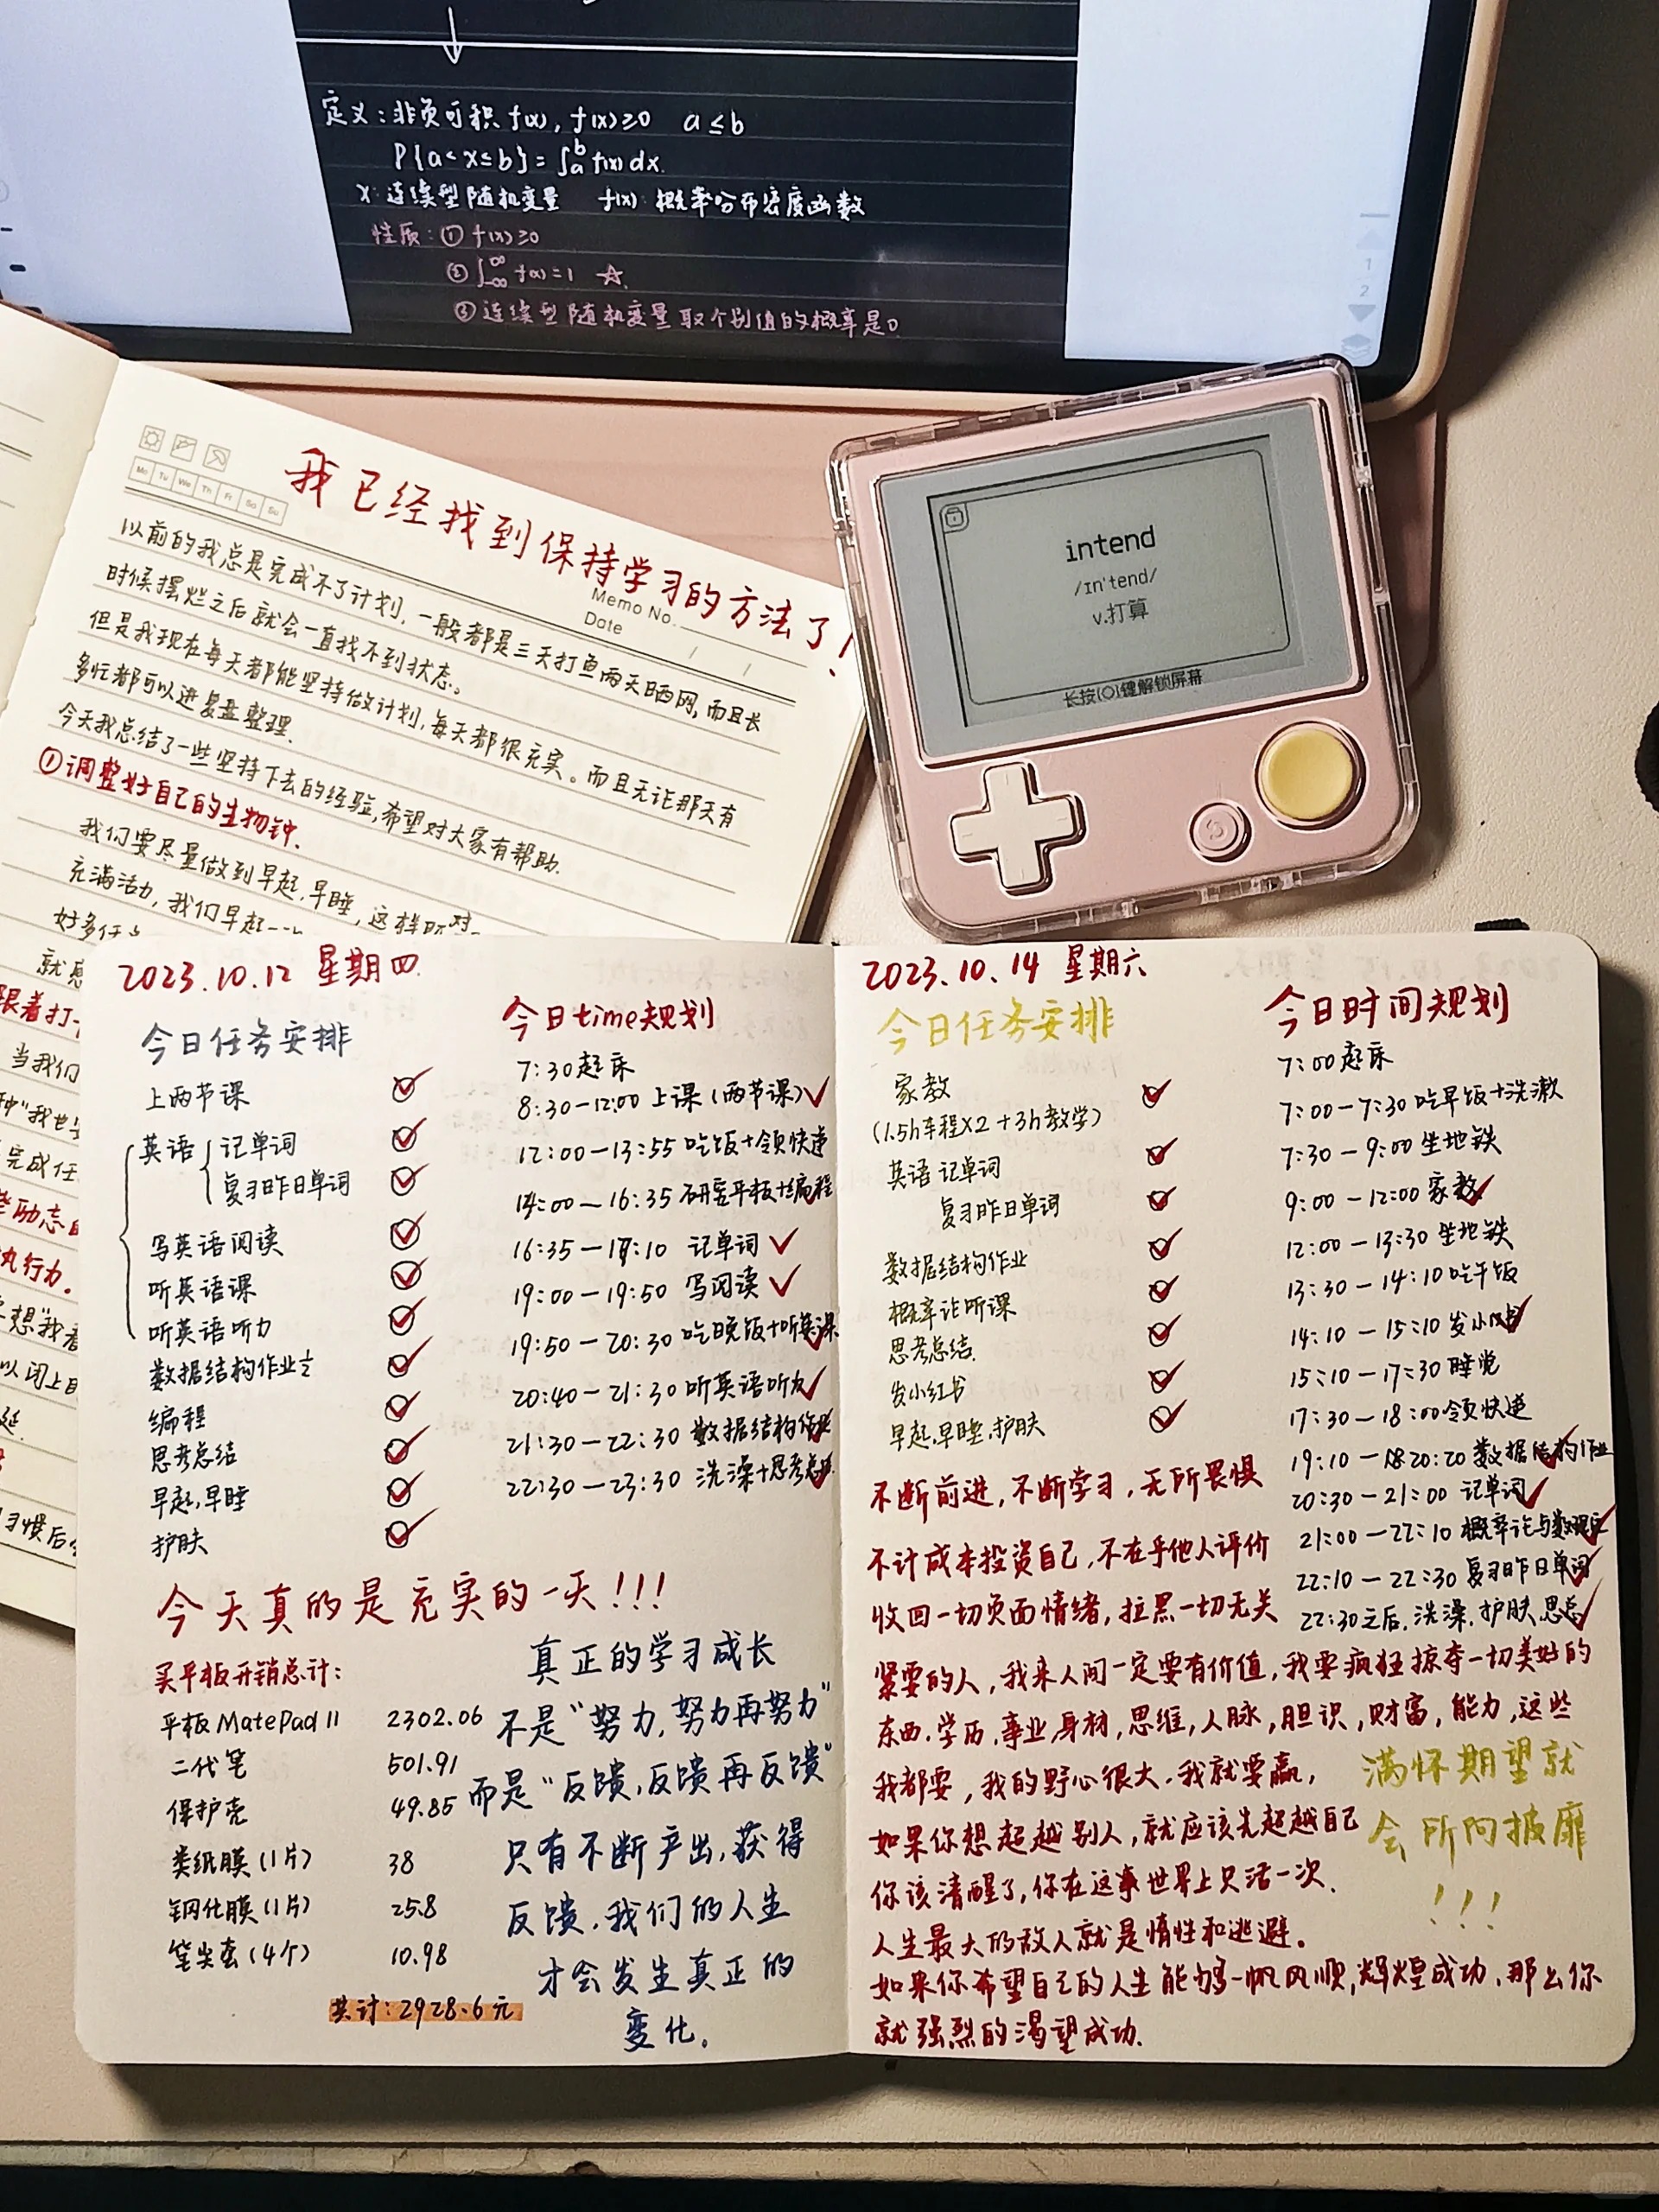 定义：非负可积 f(x), f(x)≥0 a≤b
P{a<x≤b}=∫ₐᵇ f(x)dx.
X：连续型随机变量 f(x)：概率分布密度函数
性质：① f(x)≥0
② ∫₋∞^∞ f(x)=1 ☆
③ 连续型随机变量取个别值的概率是0
1
2
Mo Tu We Th Fr Sa Su
我已经找到保持学习的方法了！
Memo No.
Date / /
以前的我总是完成不了计划，一般都是三天打鱼两天晒网，而且长
时候摆烂之后就会一直找不到状态。
但是我现在每天都能坚持做计划，每天都很充实。而且无论那天有
多忙都可以进复盘整理.
今天我总结了一些坚持下去的经验，希望对大家有帮助.
①调整好自己的生物钟.
我们要尽量做到早起.早睡，这样
充满活力，我们早起一
好多任
就
跟着打
当我们
种“我也
完成任
励志
执行力.
想“我
以闭上
延.
习惯后
intend
/ɪn'tend/
v.打算
长按(O)键解锁屏幕
2023.10.12 星期四
今日任务安排
上两节课
英语 记单词
复习昨日单词
写英语阅读
听英语课
听英语听力
数据结构作业
编程
思考总结
早起,早睡
护肤
今日time规划
7:30起床
8:30—12:00 上课（两节课）
12:00—13:55 吃饭+领快递
14:00—16:35 研究平板+编程
16:35—17:10 记单词
19:00—19:50 写阅读
19:50—20:30 吃晚饭+听英课
20:40—21:30 听英语听力
21:30—22:30 数据结构作业
22:30—23:30 洗澡+思考总结
今天真的是充实的一天!!!
买平板开销总计：
平板MatePad 11 2302.06
二代笔 501.91
保护壳 49.85
类纸膜(1片) 38
钢化膜(1片) 25.8
笔尖套(4个) 10.98
共计：2928.6元
真正的学习成长
不是“努力,努力再努力”
而是“反馈,反馈再反馈”
只有不断产出,获得
反馈.我们的人生
才会发生真正的
变化。
2023.10.14 星期六
今日任务安排
家教
(1.5h车程×2+3h教学)
英语 记单词
复习昨日单词
数据结构作业
概率论听课
思考总结.
发小红书
早起.早睡.护肤
今日时间规划
7:00起床
7:00—7:30 吃早饭+洗漱
7:30—9:00 坐地铁
9:00—12:00 家教
12:00—13:30 坐地铁
13:30—14:10 吃午饭
14:10—15:10 发小红书
15:10—17:30 睡觉
17:30—18:00 领快递
19:10—20:20 数据结构作业
20:30—21:00 记单词
21:00—22:10 概率论与数理
22:10—22:30 复习昨日单词
22:30之后.洗澡.护肤.思总
不断前进，不断学习，无所畏惧
不计成本投资自己，不在乎他人评价
收回一切负面情绪，拉黑一切无关
紧要的人，我来人间一定要有价值，我要疯狂掠夺一切美好的
东西.学历，事业，身材，思维，人脉，胆识，财富，能力，这些
我都要，我的野心很大.我就要赢，
如果你想超越别人，就应该先超越自己
你该清醒了，你在这世界上只活一次.
人生最大的敌人就是惰性和逃避。
如果你希望自己的人生能够一帆风顺,辉煌成功.那么你
就强烈的渴望成功.
满怀期望就
会所向披靡
!!!